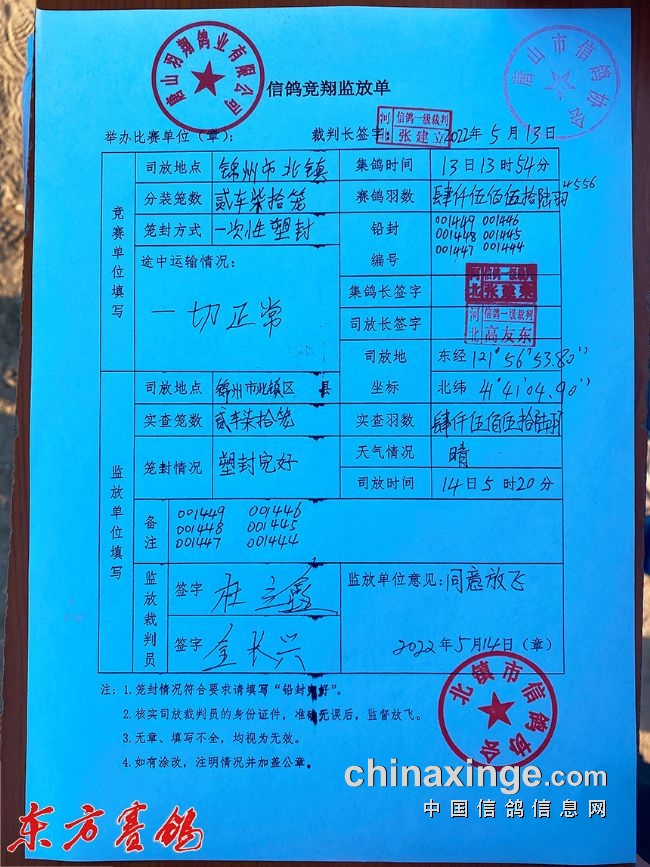 唐山羽翔鸽业有限公司
唐山市信鸽协会
信鸽竞翔监放单
举办比赛单位（章）： 裁判长签字 河北 信鸽一级裁判 张建立 2022年5月13日
竞赛单位填写
司放地点 锦州市北镇 集鸽时间 13日13时54分
分装笼数 贰车柒拾笼 赛鸽羽数 肆仟伍佰伍拾陆羽 4556
笼封方式 一次性塑封 铅封编号 001449 001446
001448 001445
001447 001444
途中运输情况：
一切正常
集鸽长签字 河北 信鸽一级裁判
司放长签字 河北 信鸽一级裁判 高友东
司放地坐标 东经 121°56'53.80''
北纬 41°41'04.90''
监放单位填写
司放地点 锦州市北镇区 县
实查笼数 贰车柒拾笼 实查羽数 肆仟伍佰伍拾陆羽
笼封情况 塑封完好 天气情况 晴
司放时间 14日5时20分
备注 001449 001446
001448 001445
001447 001444
监放裁判员 签字
签字 金长兴
监放单位意见：同意放飞
2022年5月14日（章）
北镇市信鸽协会
注：1. 笼封情况符合要求请填写“铅封完好”。
2. 核实司放裁判员的身份证件，准确无误后，监督放飞。
3. 无章、填写不全，均视为无效。
4. 如有涂改，注明情况并加盖公章。
chinaxinge.com
中国信鸽信息网
东方赛鸽